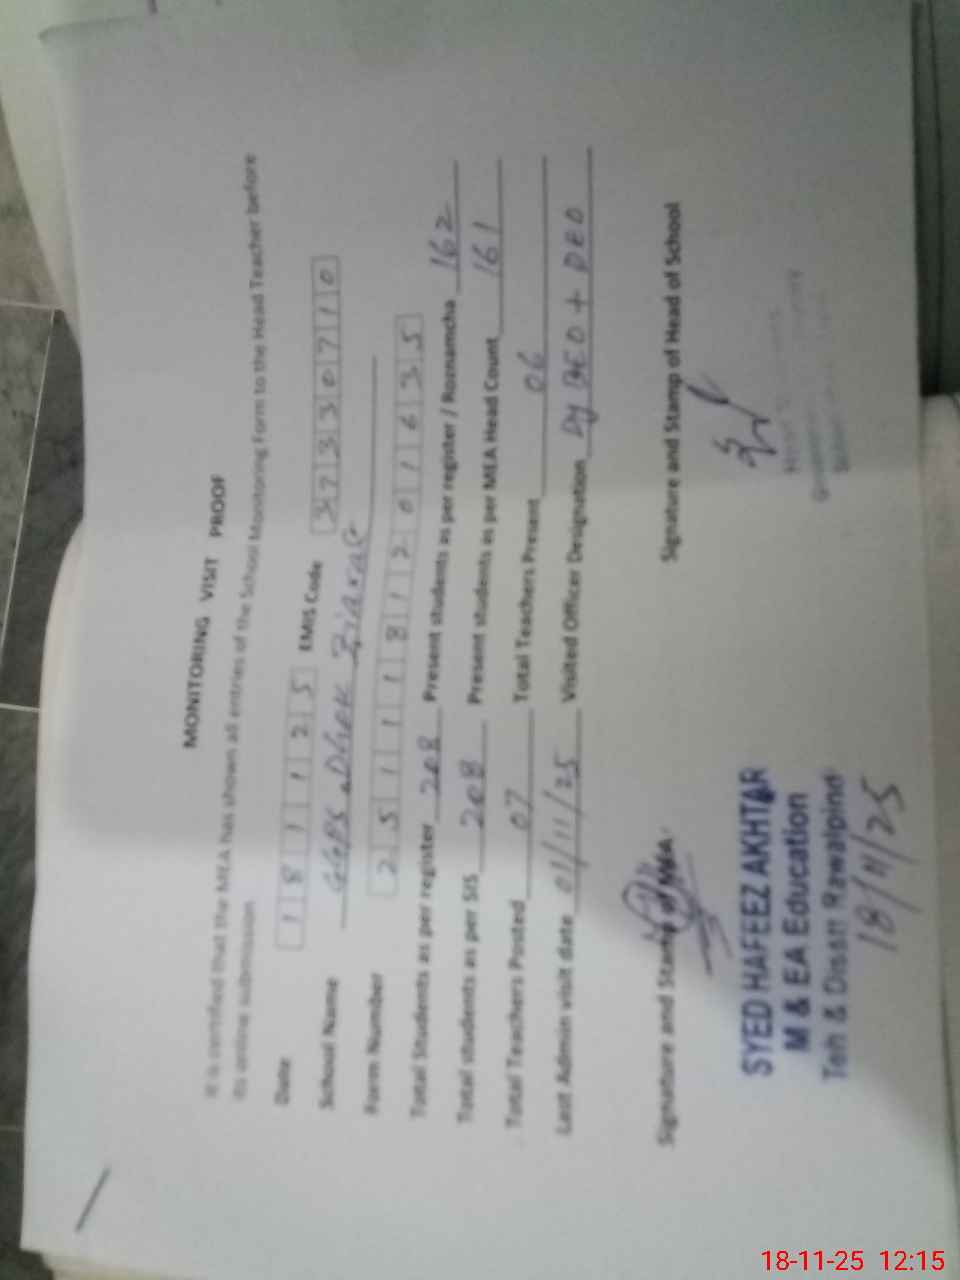 MONITORING VISIT PROOF
It is certified that the MEA has shown all entries of the School Monitoring Form to the Head Teacher before
its online submission
Date 181125 EMIS Code 37330710
School Name GGPS Dhok Ziarat
Form Number 251118120 01635
Total Students as per register 208 Present students as per register / Roznamcha 162
Total students as per SIS 208 Present students as per MEA Head Count 161
Total Teachers Posted 07 Total Teachers Present 06
Last Admin visit date 01/11/25 Visited Officer Designation Dy DEO + DEO
Signature and Stamp of MEA Signature and Stamp of Head of School
SYED HAFEEZ AKHTAR
M & EA Education
Teh & Distt Rawalpindi
18/11/25
18-11-25 12:15